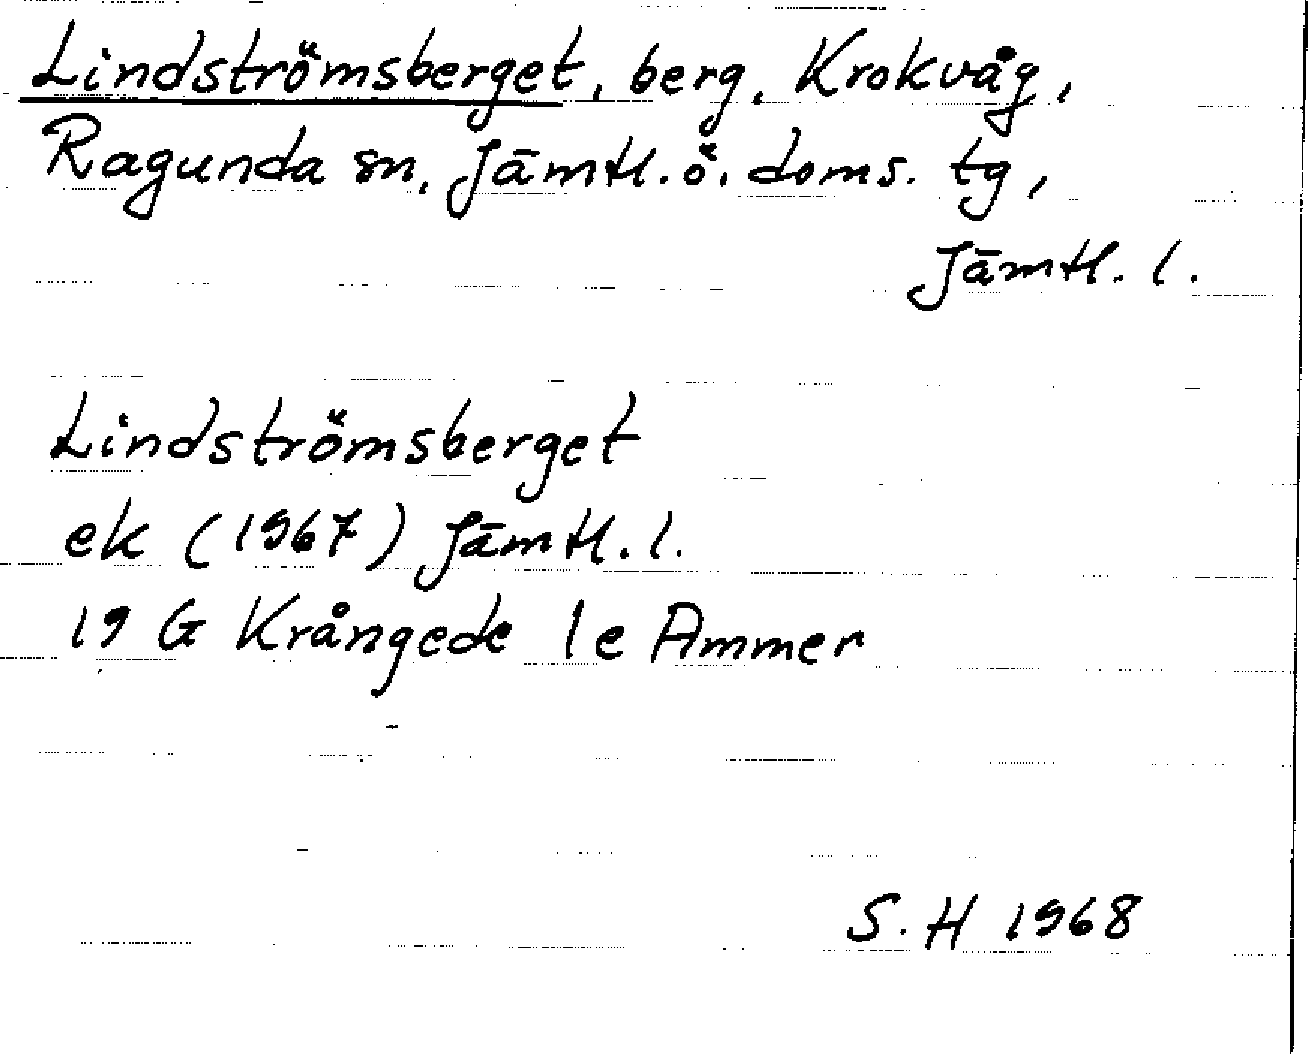 Lindströmsberget, berg, Krokvåg,
Ragunda sn, Jämtl. ö. doms. tg,
Jämtl. l.
Lindströmsberget
ek (1967) Jämtl. l.
19 G Krångede 1e Ammer
S. H 1968